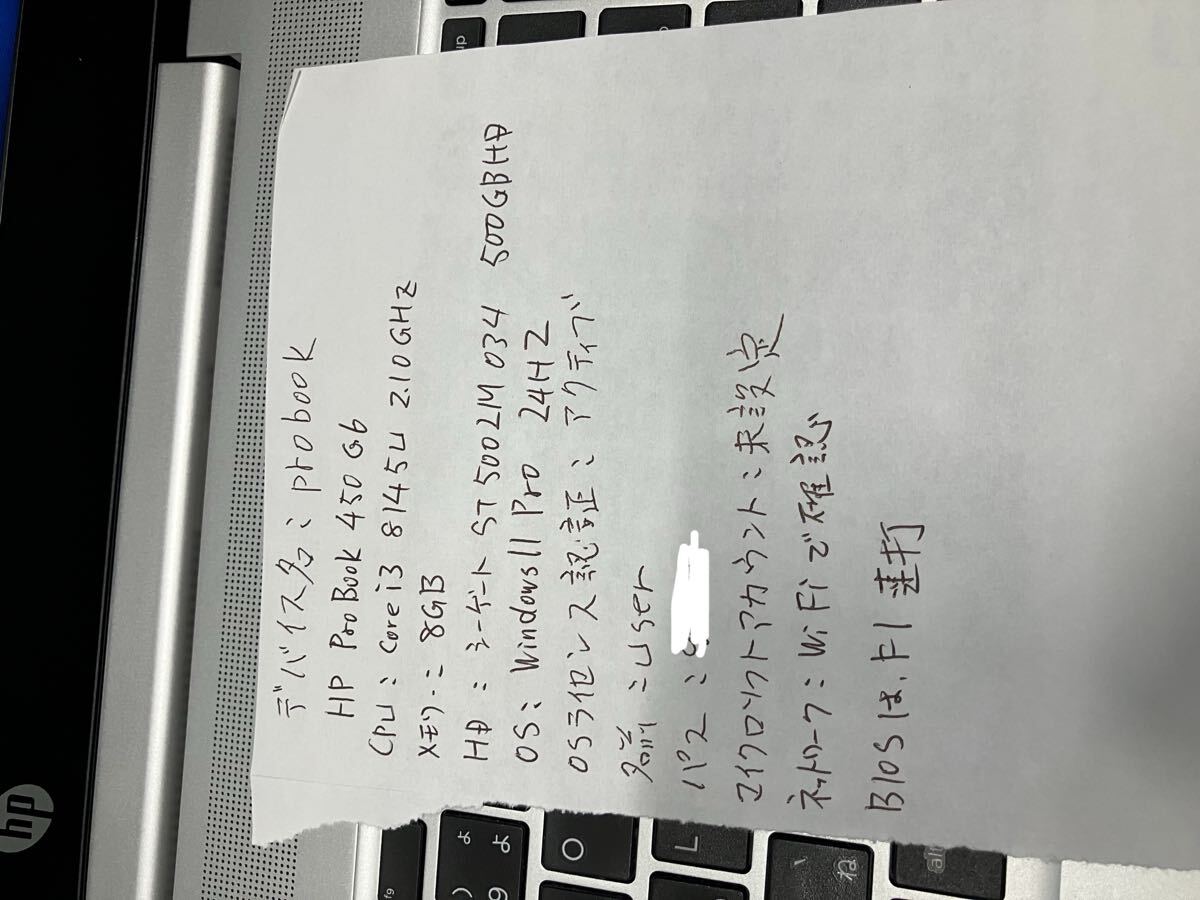 デバイス名：probook
HP ProBook 450 G6
CPU：Core i3 8145U 2.10GHz
メモリー：8GB
HD：シーゲート ST500LM034 500GBHD
OS：Windows11 Pro 24H2
OSライセンス認証：アクティブ
名前：user
パス：
マイクロソフトアカウント：未設定
ネットワーク：WiFiで確認
BIOSは、F1 連打
hp
f9
)
よ
9
よ
O
L
、
ね
alt